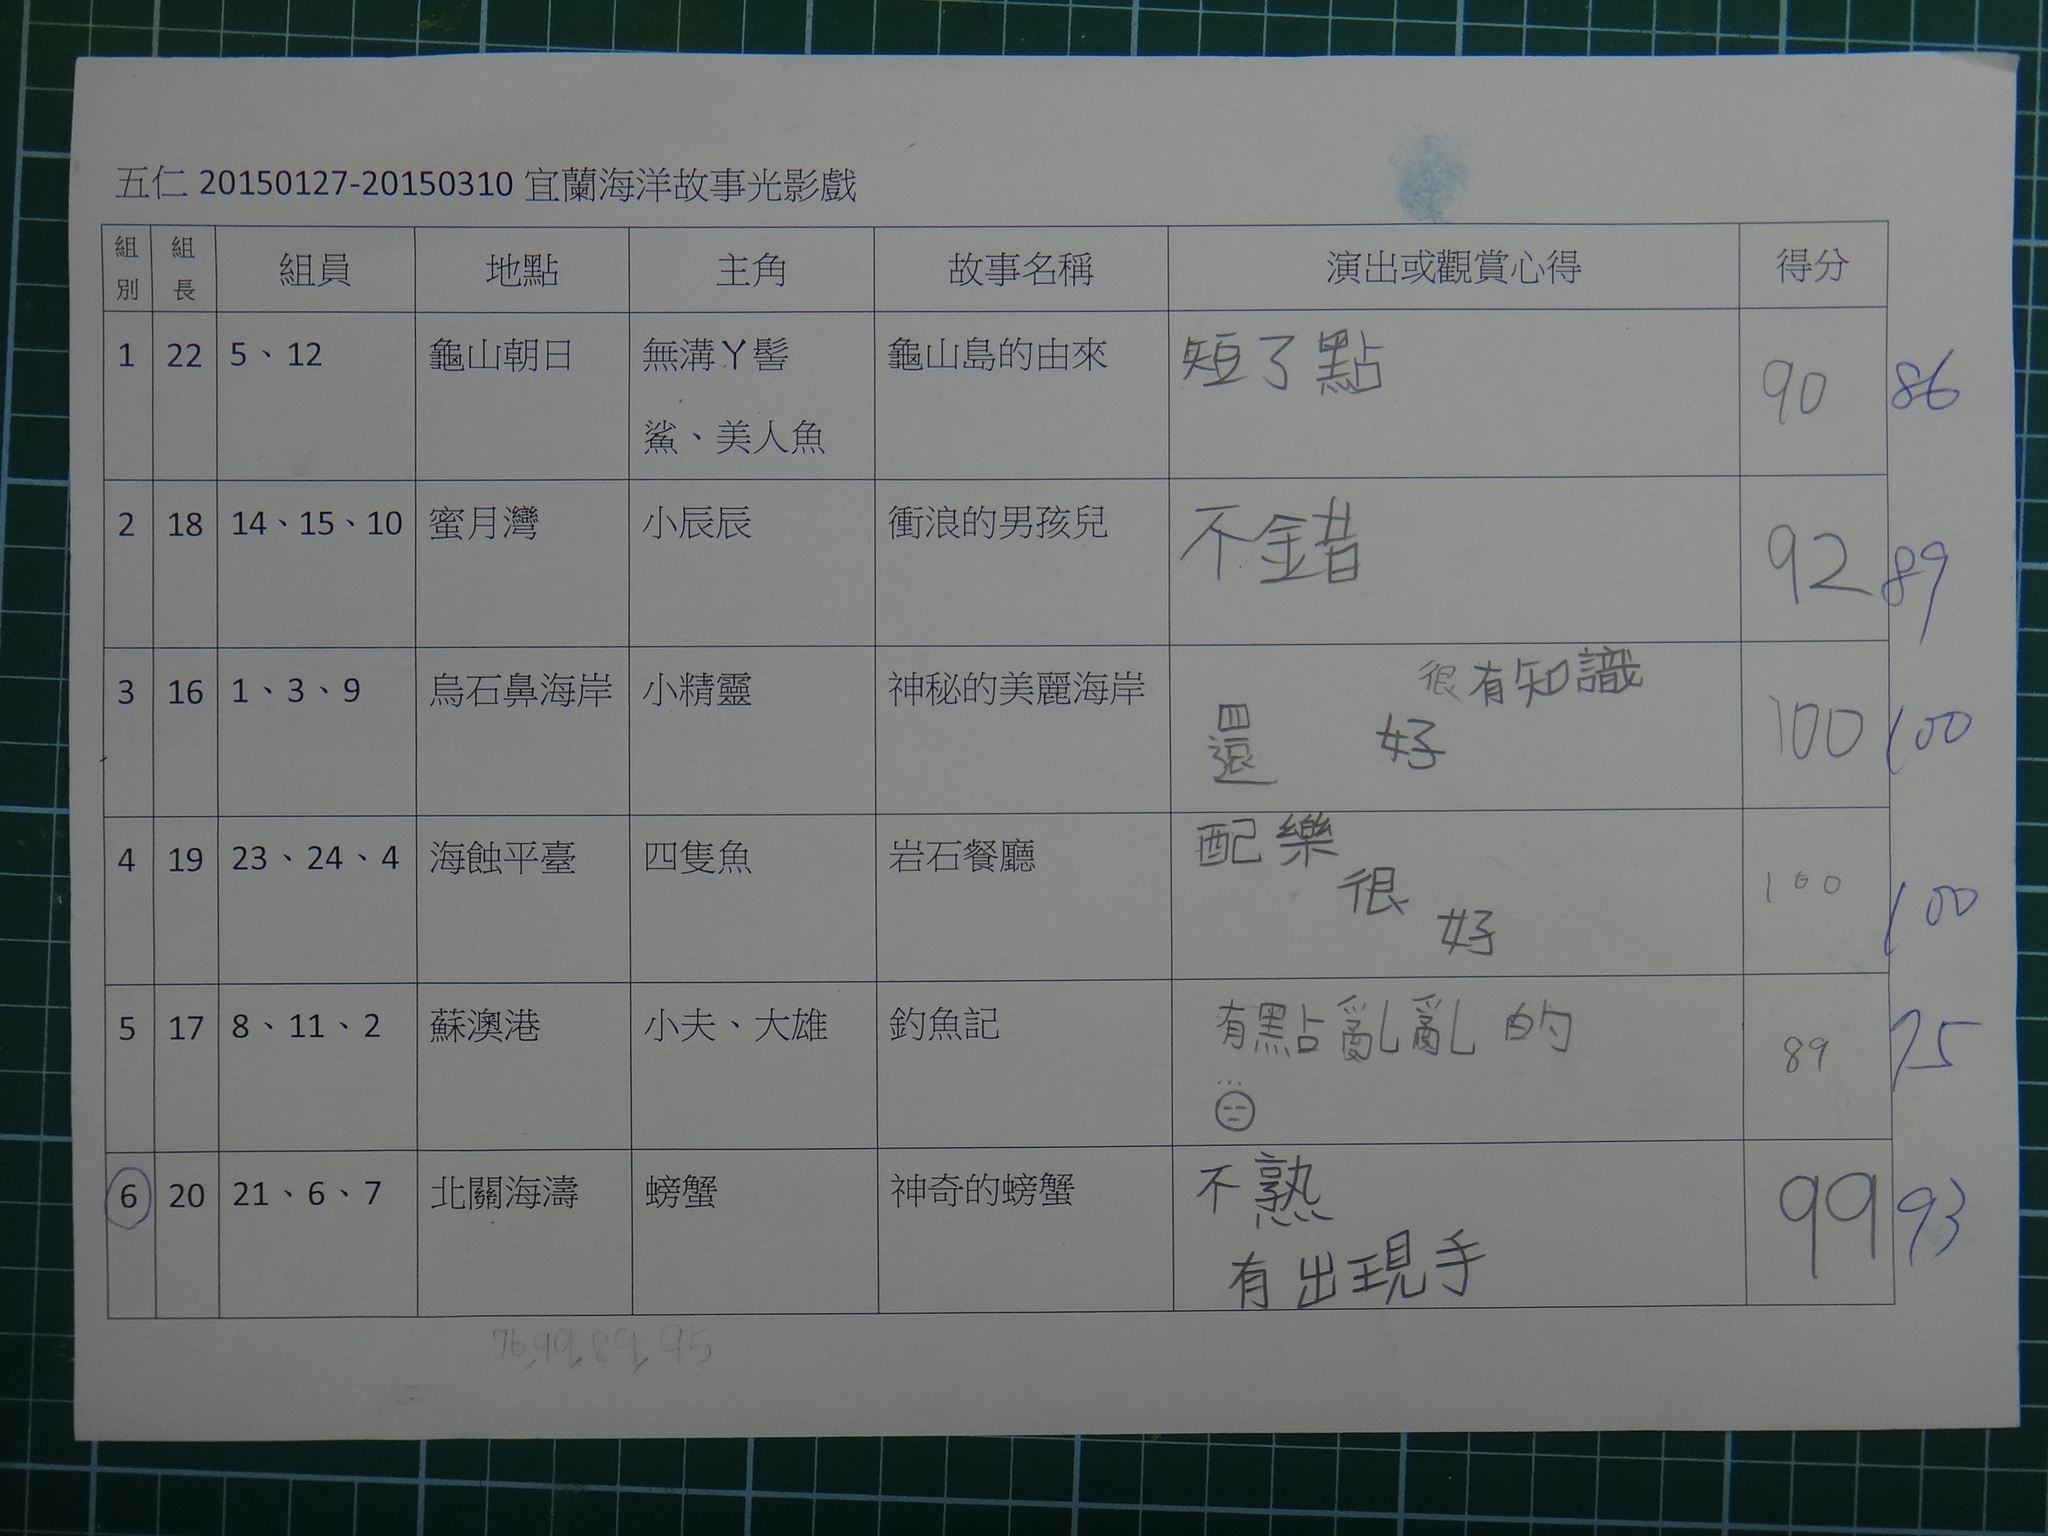 五仁 20150127-20150310 宜蘭海洋故事光影戲
組別 組長 組員 地點 主角 故事名稱 演出或觀賞心得 得分
1 22 5、12 龜山朝日 無溝丫髻 龜山島的由來 短了點 90 86
鯊、美人魚
2 18 14、15、10 蜜月灣 小辰辰 衝浪的男孩兒 不錯 92 89
3 16 1、3、9 烏石鼻海岸 小精靈 神秘的美麗海岸 很有知識 100 100
還好
4 19 23、24、4 海蝕平臺 四隻魚 岩石餐廳 配樂很好 100 100
5 17 8、11、2 蘇澳港 小夫、大雄 釣魚記 有點亂亂的 89 75
6 20 21、6、7 北關海濤 螃蟹 神奇的螃蟹 不熟 99 93
有出現手